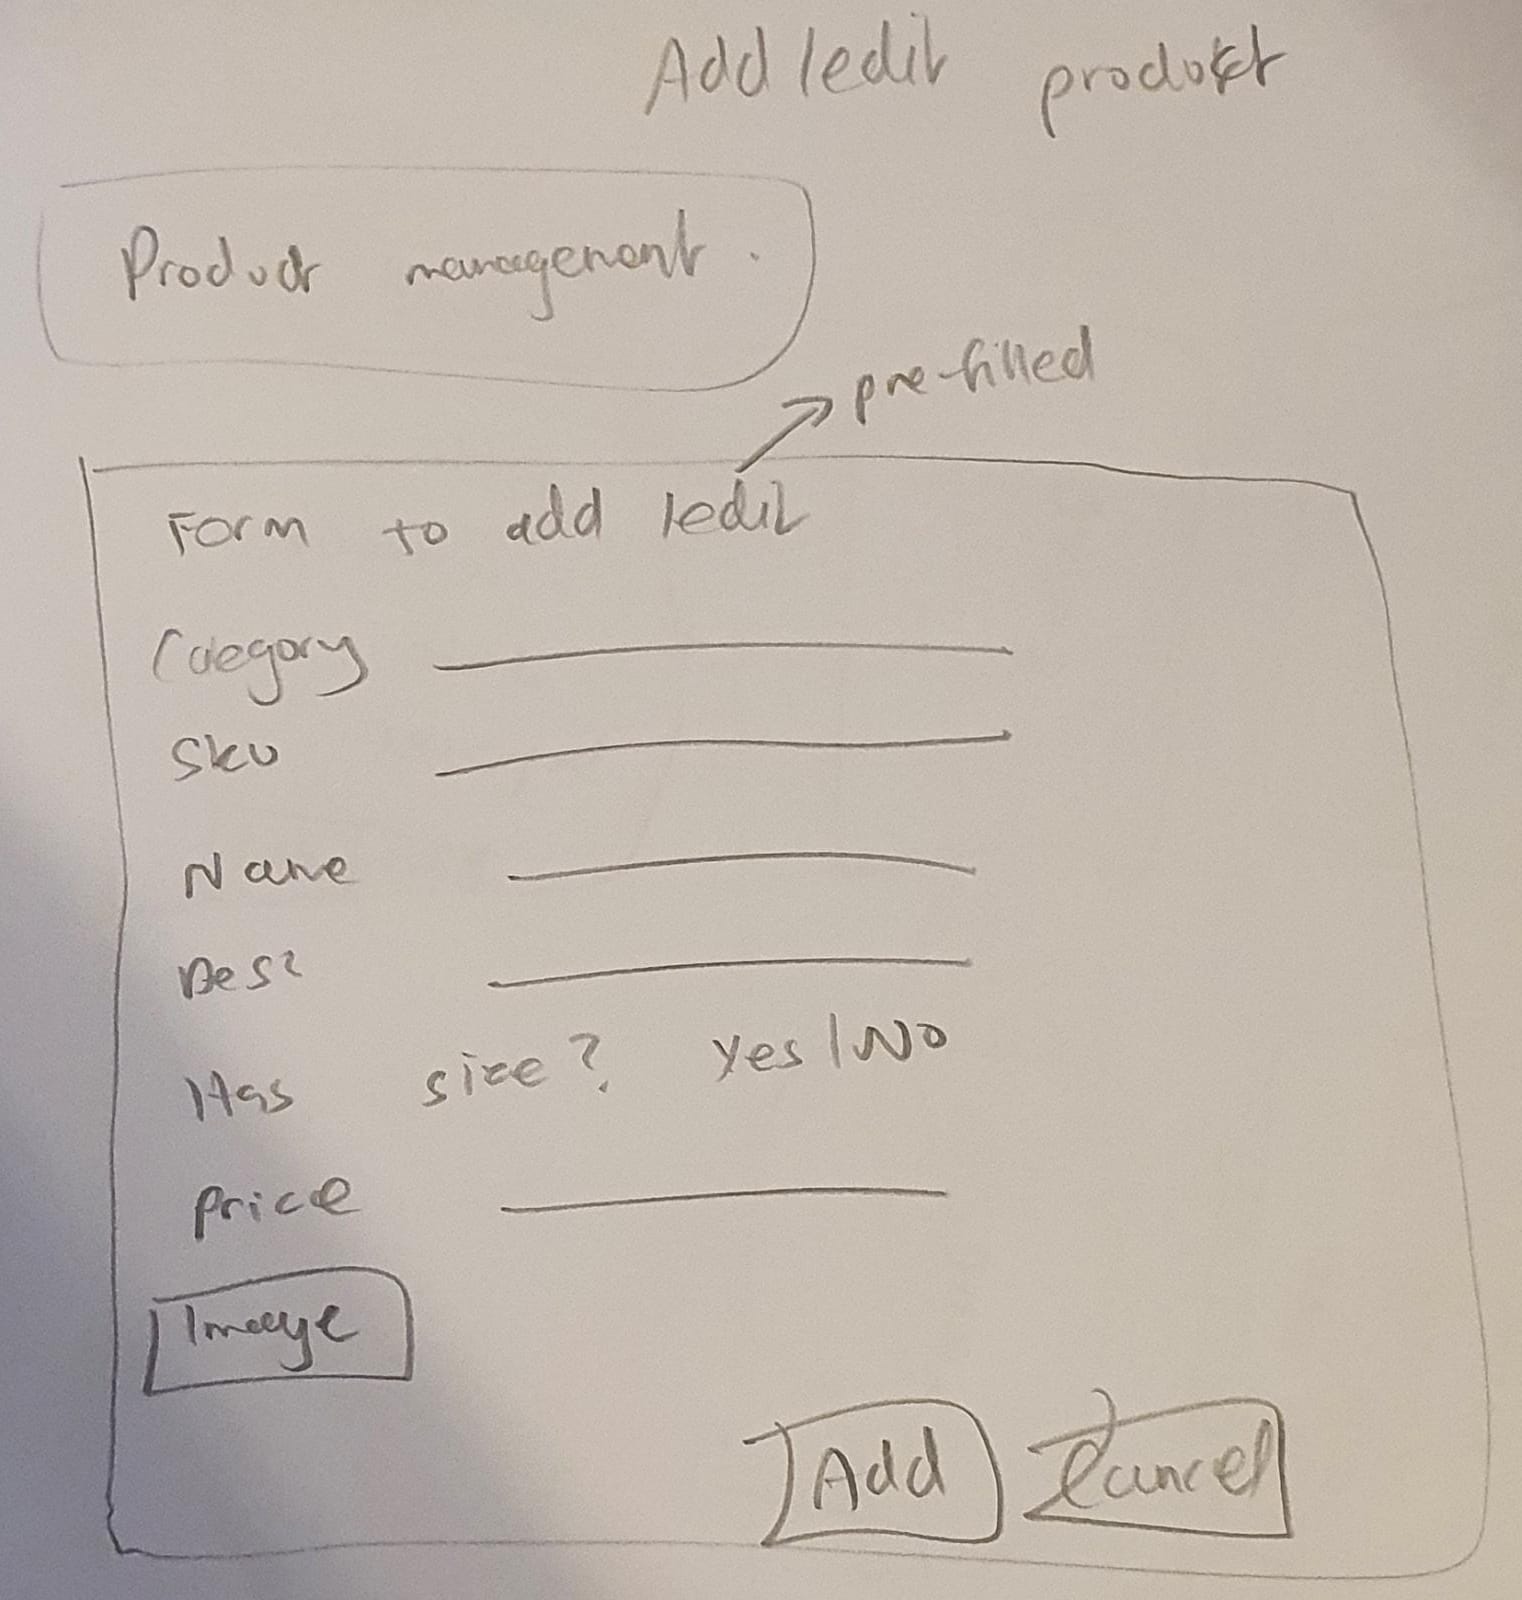 Add/edit product
Product management.
pre-filled
Form to add /edit
Category
SKU
Name
Desc
Has size? Yes/No
Price
Image
Add
Cancel